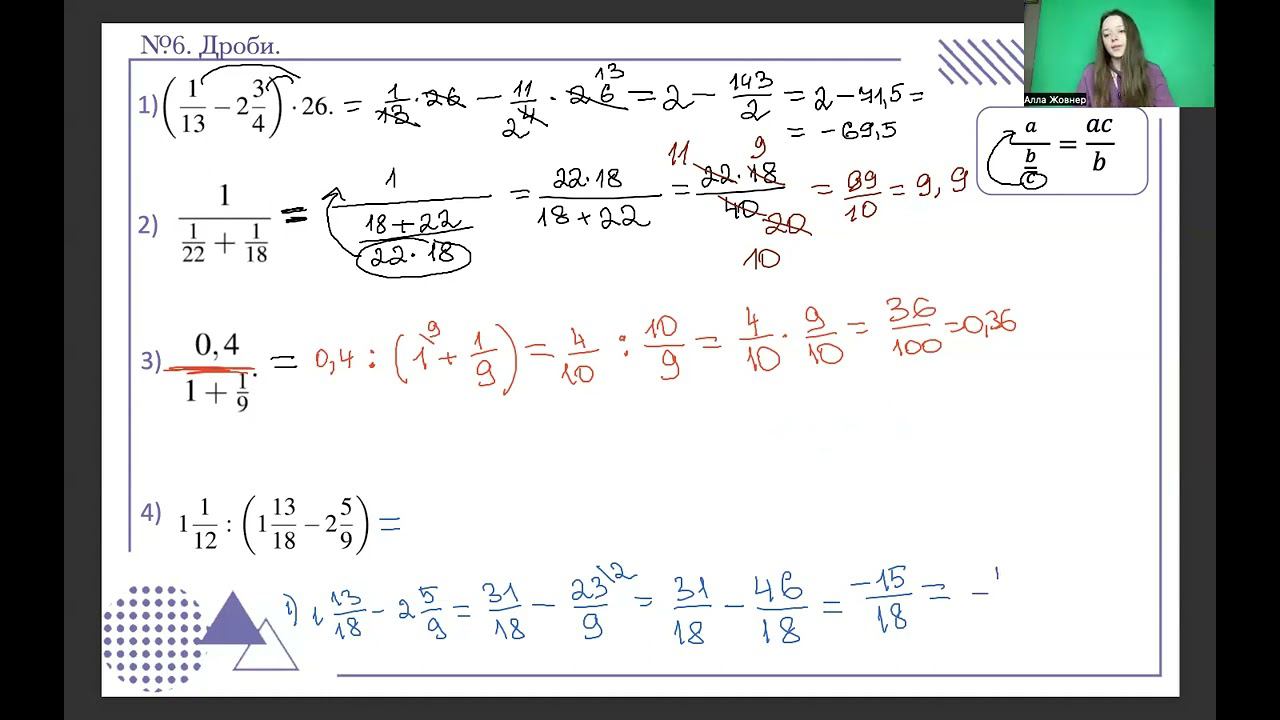 №6. Дроби.
Алла Жовнер
1) (1/13 − 2 3/4) · 26. = 1/13 · 26 − 11/4 · 26 = 2 − 143/2 = 2 − 71,5 =
13
2
= −69,5
a/(b/c) = ac/b
2) 1/(1/22 + 1/18) = 1/((18+22)/(22·18)) = (22·18)/(18+22) = (22·18)/40 = 99/10 = 9,9
11 9
20
10
3) 0,4/(1 + 1/9). = 0,4 : (1\9 + 1/9) = 4/10 : 10/9 = 4/10 · 9/10 = 36/100 = 0,36
4) 1 1/12 : (1 13/18 − 2 5/9) =
1) 1 13/18 − 2 5/9 = 31/18 − 23\2/9 = 31/18 − 46/18 = −15/18 = −